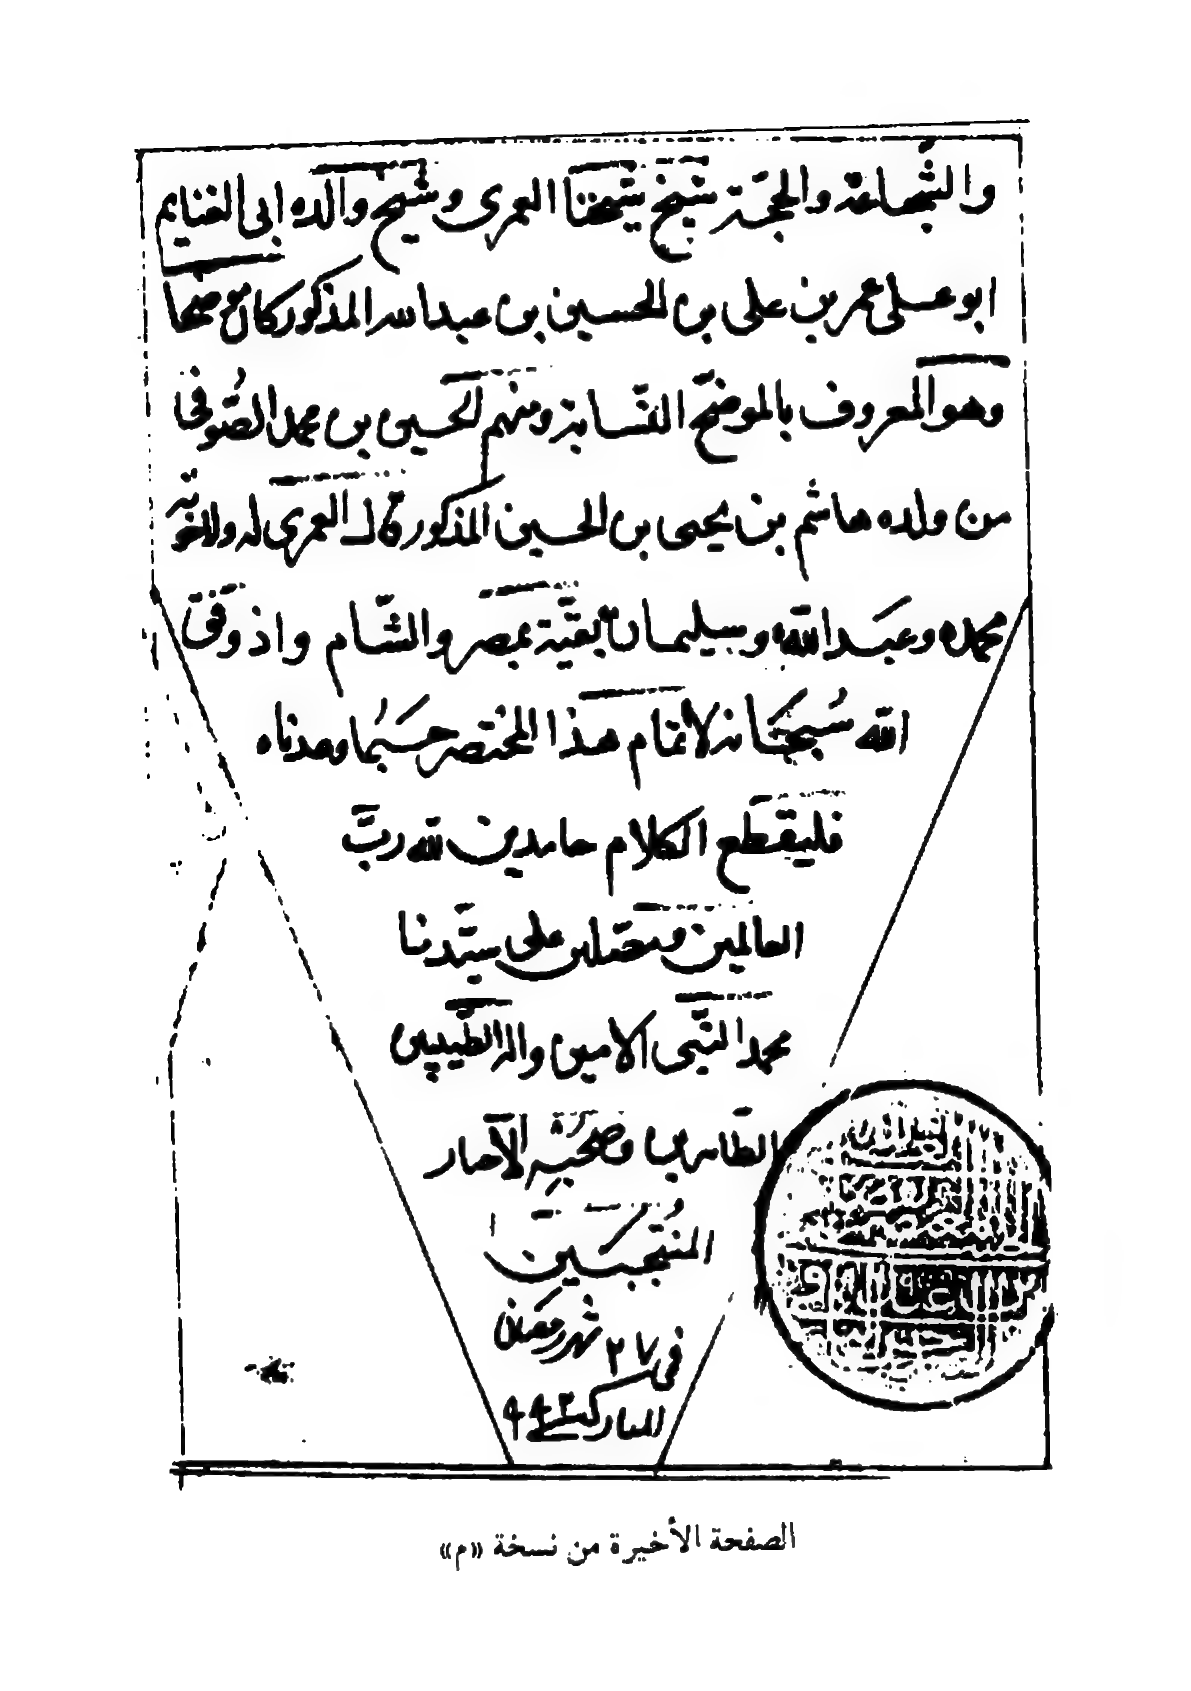 والشجاعة والحجة شيخ شيخنا العمرى وشيخ والده ابى الغنايم
ابو على عمر بن على بن الحسين بن عبدالله المذكور كان موضحا
وهو المعروف بالموضح النسابة ومنهم الحسين بن محمد الصوفى
من ولده هاشم بن يحيى بن الحسين المذكور قال العمرى له ولاخوته
محمد وعبد الله وسليمان بقية بمصر والشام واذ وفق
الله سبحانه لاتمام هذا المختصر حسبما وعدناه
فليقطع الكلام حامدين لله رب
العالمين ومصلين على سيدنا
محمد النبى الامين واله الطيبين
الطاهرين وصحبه الا
المنتجبين
فى ٢٧ شهر رمضان
المبارك
الصفحة الأخيرة من نسخة «م»